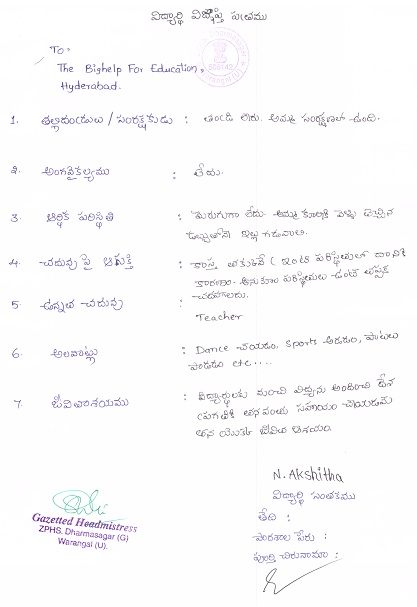 విద్యార్థి విజ్ఞప్తి పత్రము
To:
The Bighelp For Education,
Hyderabad.
1. తల్లిదండ్రులు / సంరక్షకుడు : తండ్రి లేరు. అమ్మ సంరక్షణలో ఉంది.
2. అంగవైకల్యము : లేదు.
3. ఆర్థిక పరిస్థితి : మెరుగుగా లేదు. అమ్మ కూలికి వెళ్ళి తెచ్చిన
డబ్బుతోనే ఇల్లు గడవాలి.
4. చదువు పై ఆసక్తి : కాస్త తక్కువే ( ఇంటి పరిస్థితులే దానికి
కారణం. అనుకూల పరిస్థితులు ఉంటే తప్పక
చదవగలదు.
5. ఉన్నత చదువు :
Teacher
6. అలవాట్లు : Dance చేయడం, Sports ఆడడం, పాటలు
పాడడం etc....
7. జీవితాశయము : విద్యార్థులకు మంచి విద్యను అందించి దేశ
ప్రగతికి తన వంతు సహాయం చేయడమే
తన యొక్క జీవిత ఆశయం.
N. Akshitha
విద్యార్థి సంతకము
తేది :
పాఠశాల పేరు :
పూర్తి చిరునామా :
Gazetted Headmistress
ZPHS, Dharmasagar (G)
Warangal (U).